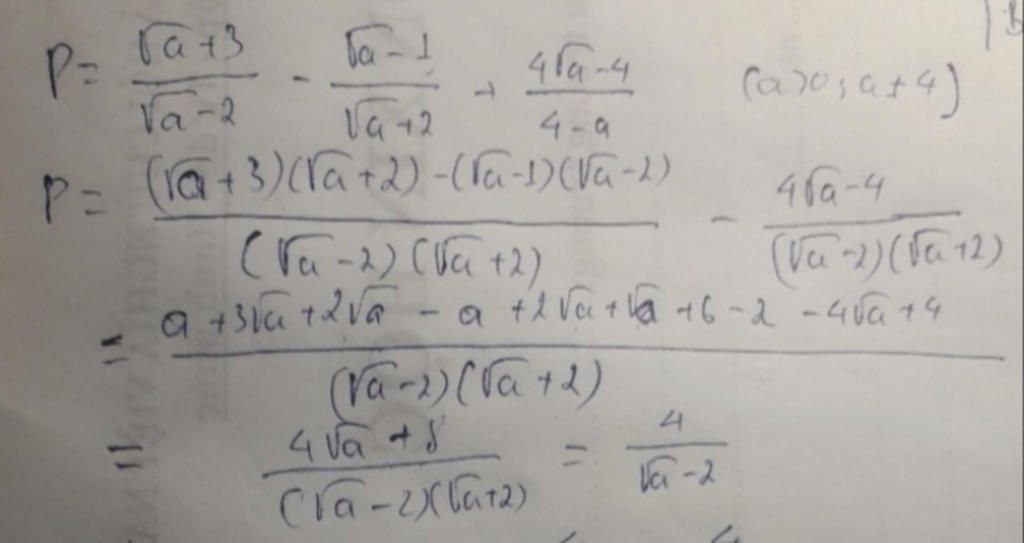 P = \frac{\sqrt{a}+3}{\sqrt{a}-2} - \frac{\sqrt{a}-1}{\sqrt{a}+2} + \frac{4\sqrt{a}-4}{4-a} (a>0; a≠4)
P = \frac{(\sqrt{a}+3)(\sqrt{a}+2)-(\sqrt{a}-1)(\sqrt{a}-2)}{(\sqrt{a}-2)(\sqrt{a}+2)} - \frac{4\sqrt{a}-4}{(\sqrt{a}-2)(\sqrt{a}+2)}
= \frac{a+3\sqrt{a}+2\sqrt{a}-a+2\sqrt{a}+\sqrt{a}+6-2-4\sqrt{a}+4}{(\sqrt{a}-2)(\sqrt{a}+2)}
= \frac{4\sqrt{a}+8}{(\sqrt{a}-2)(\sqrt{a}+2)} = \frac{4}{\sqrt{a}-2}